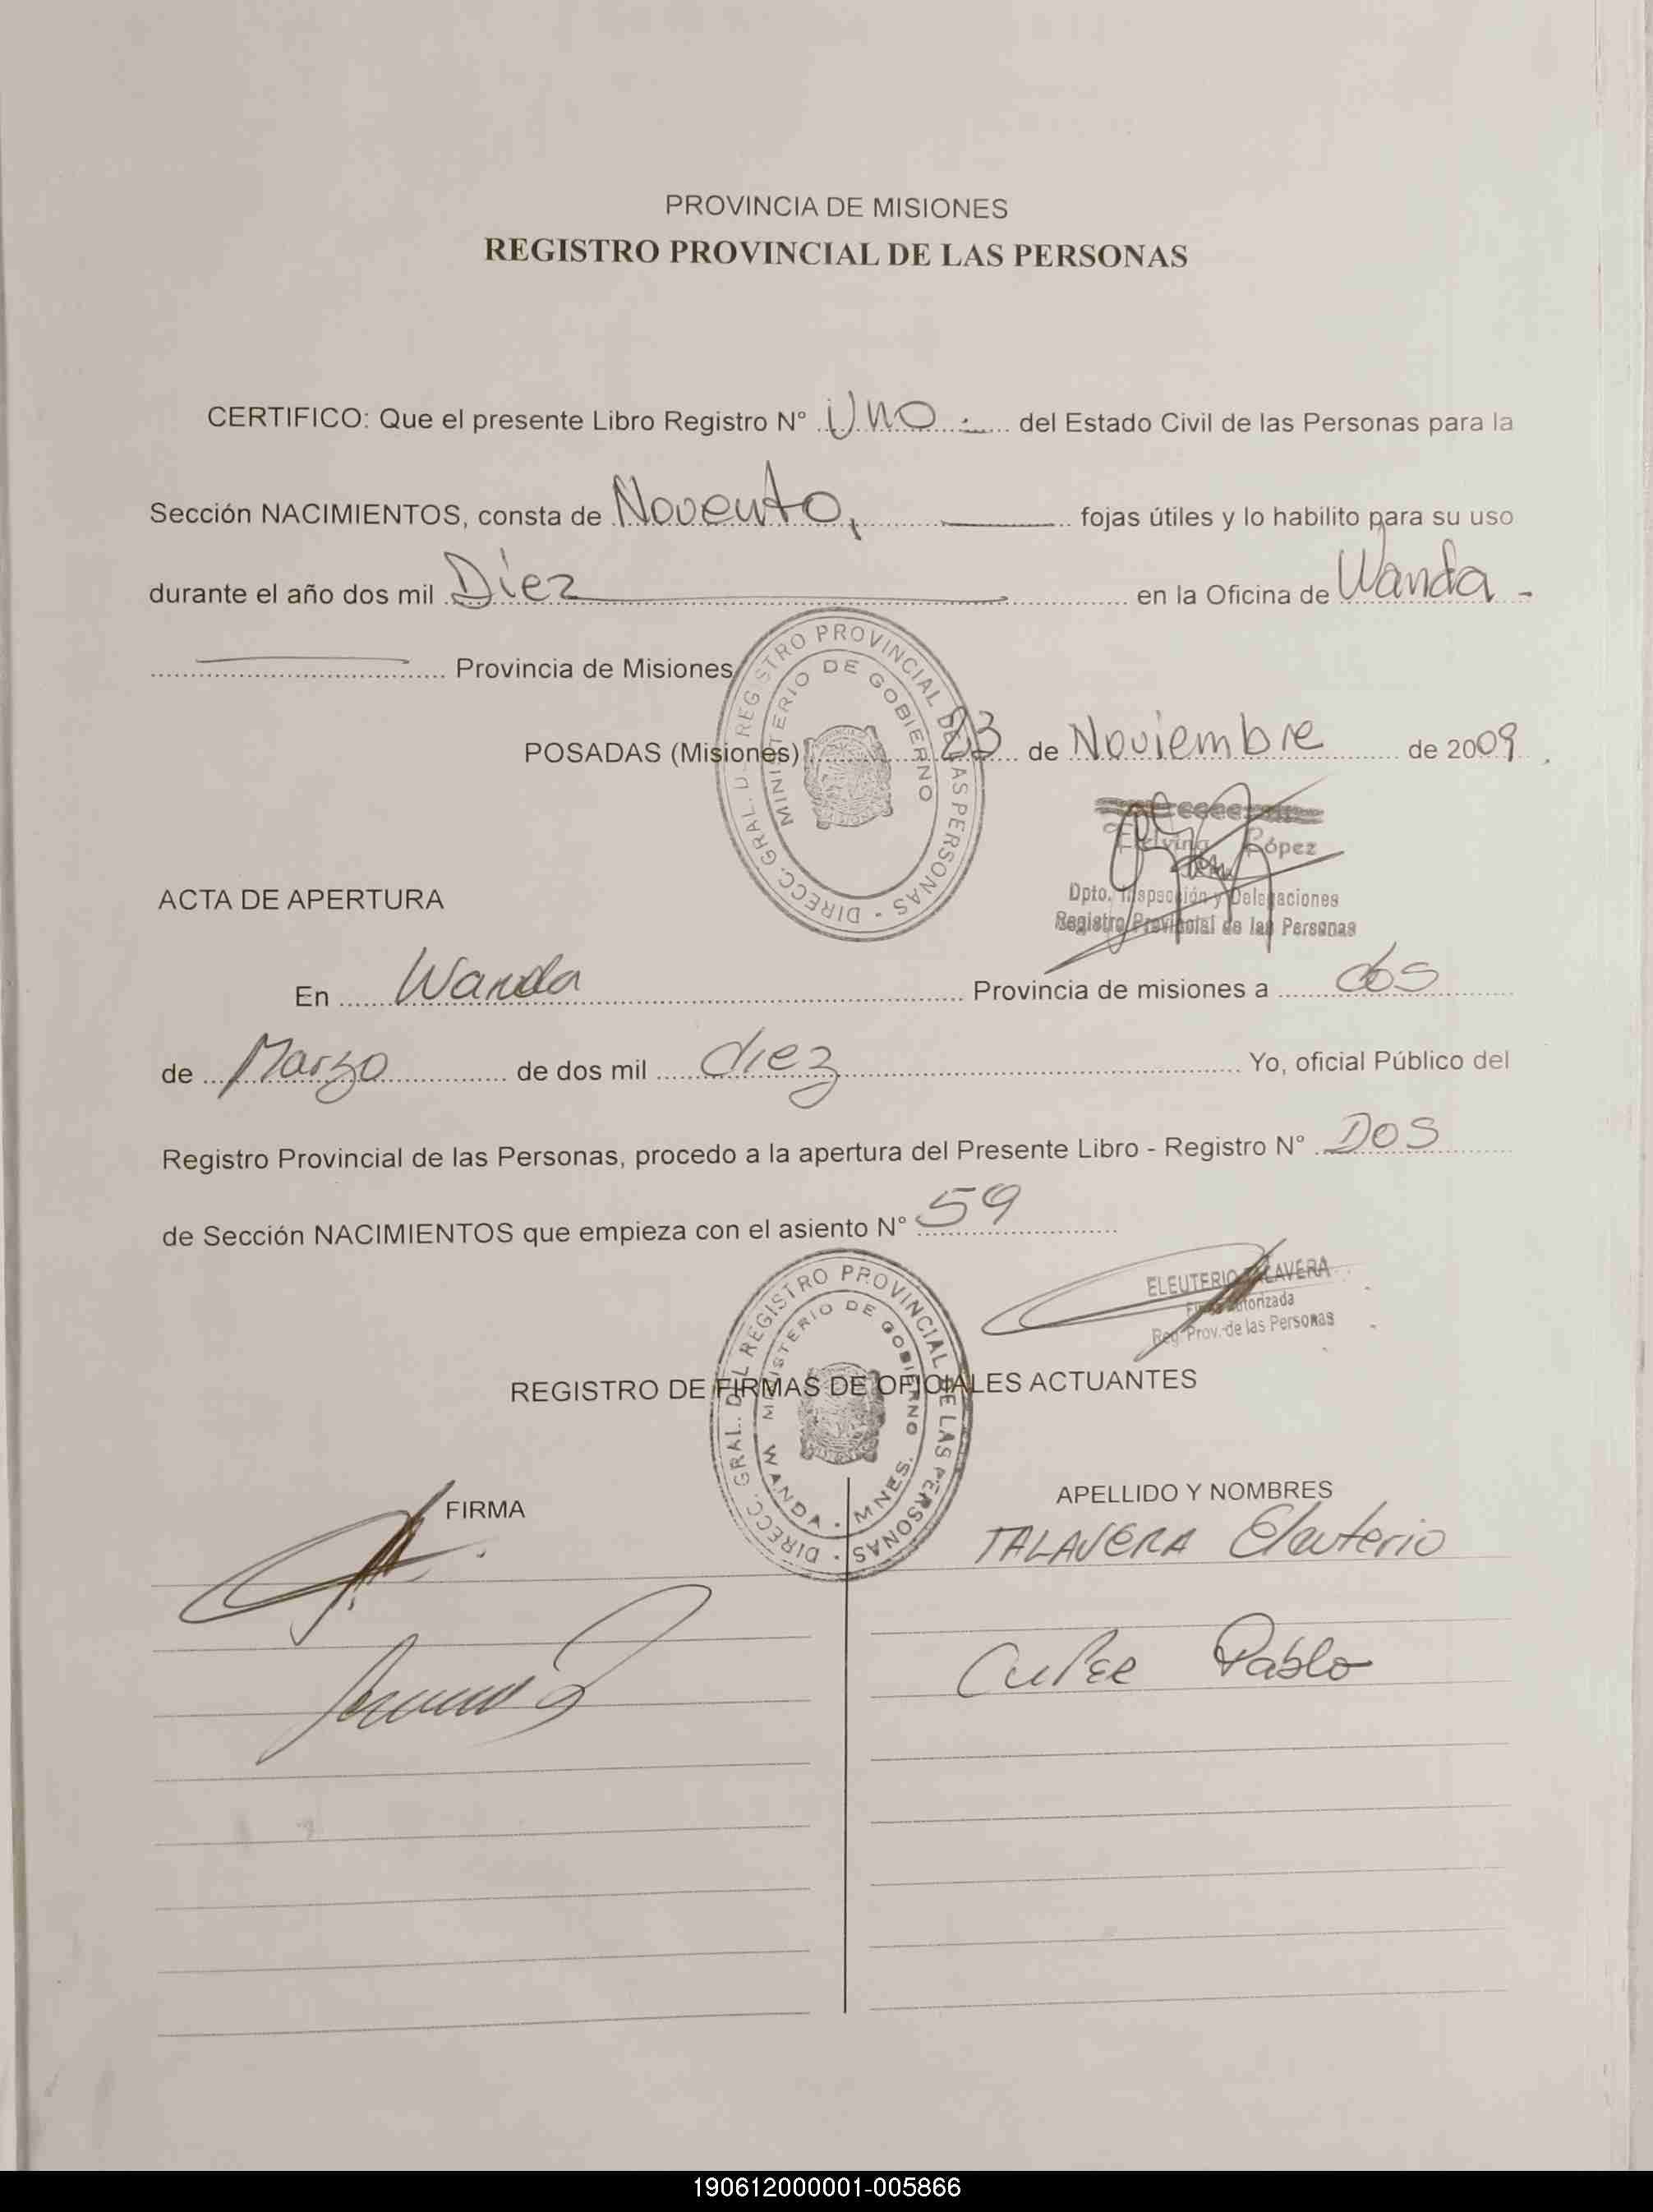 PROVINCIA DE MISIONES
REGISTRO PROVINCIAL DE LAS PERSONAS
CERTIFICO: Que el presente Libro Registro N° Uno.- del Estado Civil de las Personas para la
Sección NACIMIENTOS, consta de Novento, fojas útiles y lo habilito para su uso
durante el año dos mil Diez en la Oficina de Wanda -
Provincia de Misiones
DIRECC. GRAL. DEL REGISTRO PROVINCIAL DE LAS PERSONAS
MINISTERIO DE GOBIERNO
POSADAS (Misiones) 23 de Noviembre de 2009.
López
Dpto. Inspección y Delegaciones
Registro Provincial de las Personas
ACTA DE APERTURA
En Wanda Provincia de misiones a dos
de Marzo de dos mil diez Yo, oficial Público del
Registro Provincial de las Personas, procedo a la apertura del Presente Libro - Registro N° DOS
de Sección NACIMIENTOS que empieza con el asiento N° 59
ELEUTERIO TALAVERA
Firma Autorizada
Reg. Prov. de las Personas
DIRECC. GRAL. DEL REGISTRO PROVINCIAL DE LAS PERSONAS
MINISTERIO DE GOBIERNO
WANDA - MNES.
REGISTRO DE FIRMAS DE OFICIALES ACTUANTES
FIRMA
APELLIDO Y NOMBRES
TALAVERA Eleuterio
Pablo
190612000001-005866